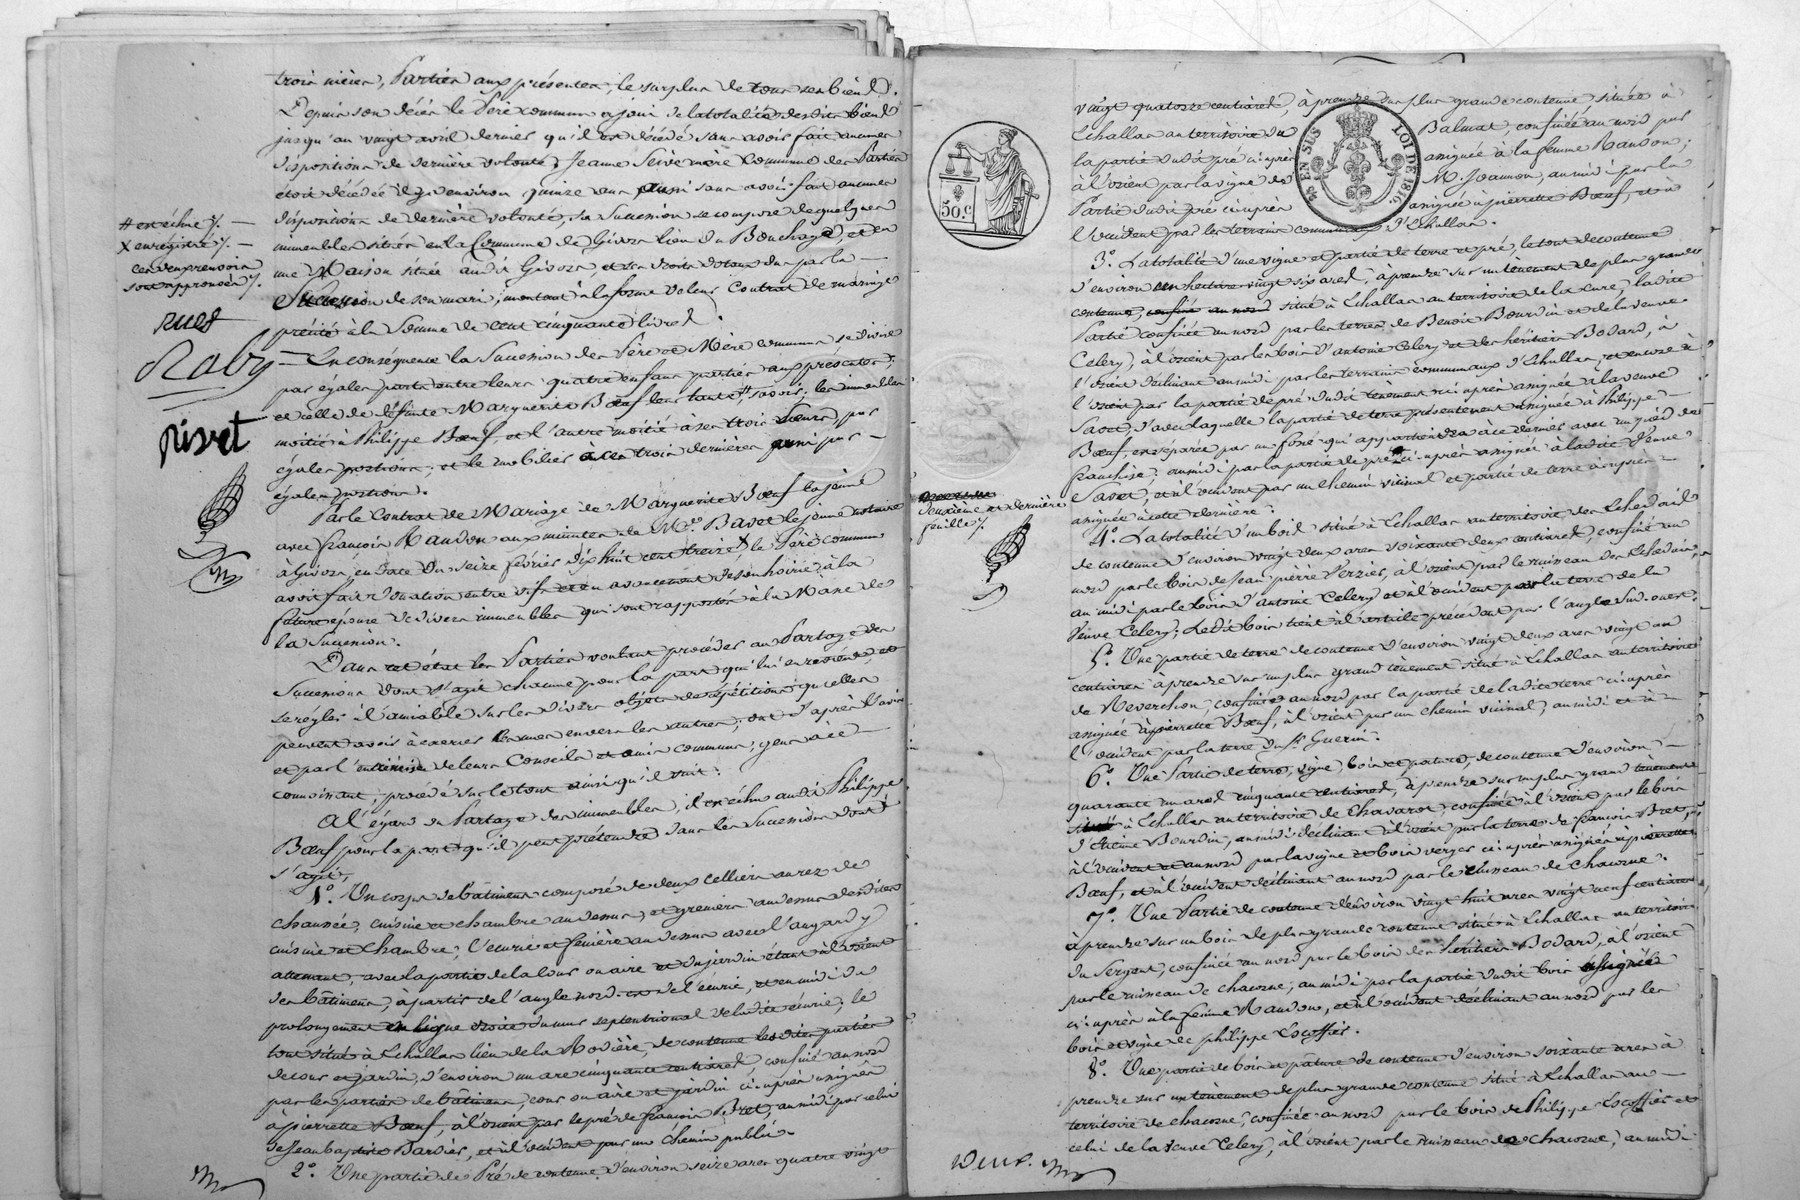 trois nièces, Parties aux présentes, le surplus de tous ses biens.
Depuis son décès le Père commun a joui de la totalité desdits biens
jusqu'au vingt avril dernier qu'il est décédé sans avoir fait aucunes
dispositions de dernière volonté; Jeanne Seive mère commune des Parties
étoit décédée il y a environ quinze ans aussi sans avoir fait aucunes
dispositions de dernière volonté, sa Succession se compose de quelques
immeubles situés en la Commune de Givors lieu du Bouchage, et en
une Maison située audit Givors, et ses droits dotaux dus par la
Succession de son mari, montant à la forme de leur Contrat de mariage
précité à la Somme de cent cinquante livres.
En conséquence la Succession des Père et Mère communs se divise
par égales parts entre leurs quatre enfans parties aux présentes;
et celle de défunte Marguerite Bœuf leur tante #, savoir: les immeubles
moitié à Philippe Bœuf, et l'autre moitié à ses trois Sœurs, par
égales portions; et le mobilier à ces trois dernières aussi par
égales portions.
Par le Contrat de Mariage de Marguerite Bœuf la jeune
avec françois Randon aux minutes de Me. Bavet le jeune notaire
à Givors, en date du seize février dix huit cent treize X le Père commun
avoit fait donation entre vifs et en avancement de son hoirie, à la
future épouse de divers immeubles qui sont rapportés à la Masse de
la Succession.
Dans cet état les Parties voulant procéder au Partage des
Successions dont s'agit chacune pour la part qui lui en revient, et
se régler à l'amiable sur les divers objets de répétitions qu'elles
peuvent avoir à exercer les unes envers les autres, ont d'après l'avis
et par l'entremise de leurs Conseils et amis communs, gens à ce
connoissant, procédé sur le tout ainsi qu'il suit:
A l'égard du Partage des immeubles, il est échu audit Philippe
Bœuf pour la part qu'il peut prétendre dans les Successions dont
s'agit,
1º. Un corps de bâtimens composé de deux celliers au rez de
chaussée, cuisine et chambre au dessus, et greniers au dessus desdites
cuisine et Chambre, l'écurie et fenière au dessus avec l'angard y
attenant, avec la portion de la cour ou aire et du jardin étant à l'orient
des bâtimens, à partir de l'angle nord de l'écurie, et en midi du
prolongement en ligne droite du mur septentrional de ladite écurie, le
tout situé à Echallas lieu de la Rodière, de contenue lesdites parties
de cour et jardin, d'environ un are cinquante centiares, confiné au nord
par les parties de bâtimens, cour ou aire et jardin ci-après assignées
à pierrette Bœuf, à l'orient par le pré de françois Bret, au midi par celui
de Jean baptiste Barbier, et à l'occident par un chemin public.
2º. Une partie de Pré de contenue d'environ seize ares quatre vingt
# est échue /. —
X enregistré /. —
ces deux renvois
sont approuvés /.
Rues
Raby
pivet
vingt quatorze centiares, à prendre d'un plus grande contenue, située à
Echallas au territoire du Balmat, confinée au nord par
la partie dudit pré ci-après assignée à la femme Randon;
à l'orient par la vigne de M. Joannon, au midi par la
Partie dudit pré ci-après assignée à pierrette Bœuf, et à
l'occident par les terrains communaux d'Echallas.
50.c
EN SUS LOI DE 1816.
3º. La totalité d'une vigne et partie de terre et pré, le tout de contenue
d'environ un hectare vingt six ares, à prendre sur un tènement de plus grande
contenue, situé à Echallas au territoire de la Cure, ladite
Partie confinée au nord par les terres de Benoit Bourdin et de la veuve
Celery, à l'orient par les bois d'antoine Celery et des héritiers Bodard, à
l'orient déclinant au midi par les terrains communaux d'Echallas, et encore à
l'orient par la partie de pré dudit tènement ci-après assignée à la veuve
Savet, d'avec laquelle la partie de terre présentement assignée à Philippe
Bœuf, est séparée par un fossé qui appartiendra à ce dernier avec un pied de
franchise; au midi par la partie de pré ci-après assignée à ladite Veuve
Savet, et à l'occident par un chemin vicinal et partie de terre ci-après
assignée à cette dernière.
4º. La totalité d'un bois situé à Echallas au territoire des
de contenue d'environ vingt deux ares soixante deux centiares, confiné au
nord par le bois de Jean pierre Verzier, à l'orient par le ruisseau des
au midi par le bois d'antoine Celery et à l'occident par la terre de la
Veuve Celery; Ledit bois tient à l'article précédent par l'angle Sud-ouest.
5º. Une partie de terre de contenue d'environ vingt deux ares vingt un
centiares à prendre sur un plus grand tènement situé à Echallas au territoire
de Reverchon, confinée au nord par la partie de ladite terre ci-après
assignée à pierrette Bœuf, à l'orient par un chemin vicinal, au midi et à
l'occident par la terre du Sr. Guerin.
6º. Une Partie de terre, vigne, bois et pature, de contenue d'environ
quarante un ares cinquante centiares, à prendre sur un plus grand tènement
situé à Echallas au territoire de Chavarot confinée à l'orient par le bois
d'Etienne Bourdin, au midi déclinant à l'orient par la terre de françois Bret,
à l'occident et au nord par la vigne et bois verger ci-après assignés à pierrette
Bœuf, et à l'occident déclinant au nord par le ruisseau de Chacorne.
7º. Une Partie de contenue d'environ vingt huit ares vingt neuf centiares
à prendre sur un bois de plus grande contenue situé à Echallas au territoire
du Sergent, confinée au nord par le bois des héritiers Bodard, à l'orient
par le ruisseau de Chacorne, au midi par la partie dudit bois assignée
ci-après à la femme Randon, et à l'occident déclinant au nord par les
bois et vigne de philippe Escoffier.
8º. Une partie de bois et pâture de contenue d'environ soixante ares à
prendre sur un tènement de plus grande contenue situé à Echallas au
territoire de Chacorne, confinée au nord par le bois de Philippe Escoffier et
celui de la Veuve Celery, à l'orient par le ruisseau de Chacorne, au midi
deuxième et dernière
feuille /.